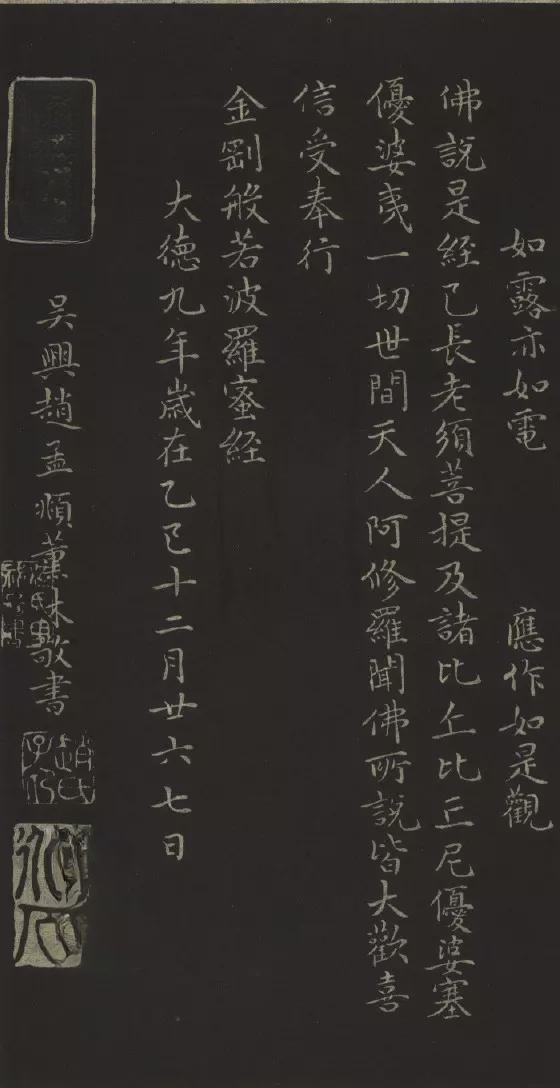 如露亦如電 應作如是觀
佛說是經已長老須菩提及諸比丘比丘尼優婆塞
優婆夷一切世間天人阿修羅聞佛所說皆大歡喜
信受奉行
金剛般若波羅蜜経
大德九年歲在乙巳十二月廿六七日
吳興趙孟頫薰沐敬書
趙氏子昂